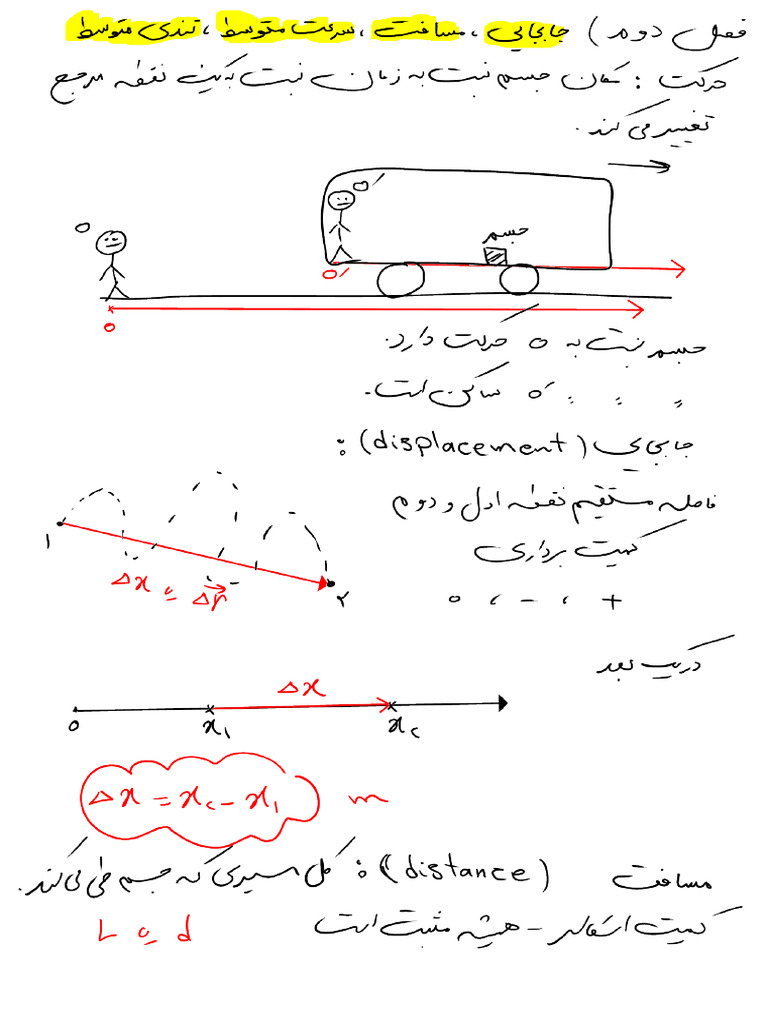 فصل دوم ) جابجایی ، مسافت ، سرعت متوسط ، تندی متوسط
حرکت : مکان جسم نسبت به زمان نسبت به یک نقطه مرجع
تغییر می کند .
o
o′
جسم
o′
o
جسم نسبت به o حرکت دارد .
〃 〃 〃 o′ ساکن است .
جابجایی (displacement) :
فاصله مستقیم نقطه اول و دوم
کمیت برداری
+ ، - ، ۰
۱
Δx یا Δr⃗
۲
در یک بعد
Δx
o x₁ x₂
Δx = x₂ - x₁ m
مسافت (distance) : کل مسیری که جسم طی می کند .
کمیت اسکالر - همیشه مثبت است
L یا d